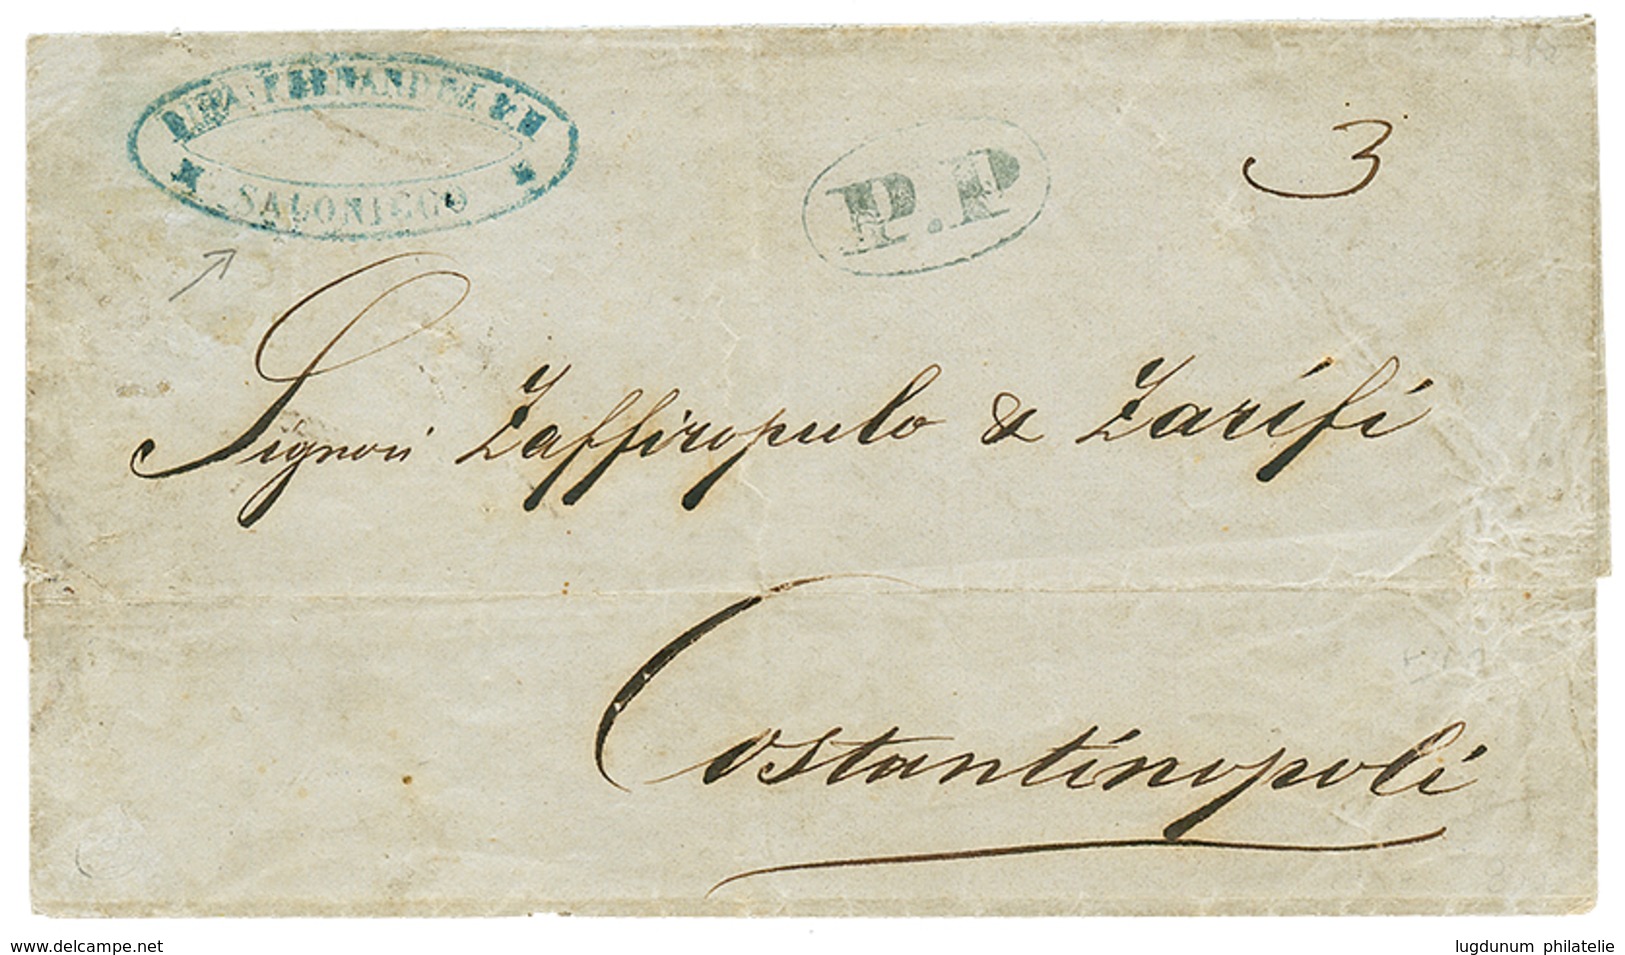 FERNANDEZ
SALONICCO
P.P
3
Signori Zaffiropulo & Zarifi
Costantinopoli
www.delcampe.net
lugdunum philatelie